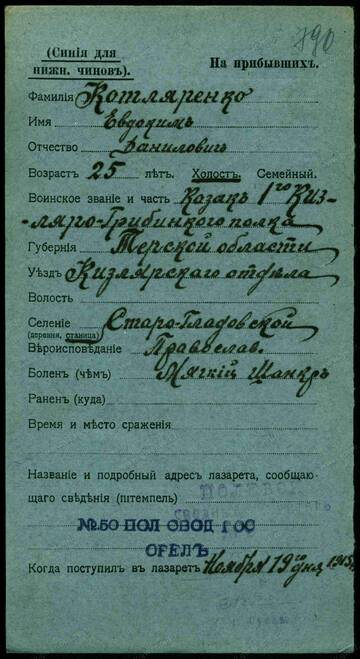 790
(Синія для
нижн. чиновъ).
На прибывшихъ.
Фамилія Котляренко
Имя Евдокимъ
Отчество Даниловичъ
Возрастъ 25 лѣтъ. Холостъ. Семейный.
Воинское званіе и часть Козакъ 1го Киз-
ляро-Гребинкого полка
Губернія Терской области
Уѣздъ Кизлярскаго отдѣла
Волость
Селеніе Старо-Гладовской
(деревня, станица)
Вѣроисповѣданіе Православ.
Боленъ (чѣмъ) Мягкій Шанкръ
Раненъ (куда)
Время и мѣсто сраженія
Названіе и подробный адресъ лазарета, сообщаю-
щаго свѣдѣнія (штемпель)
№50 ПОЛ ЗВОД ГОС
ОРЕЛЪ
Когда поступилъ въ лазаретъ Ноября 19го дня 1915